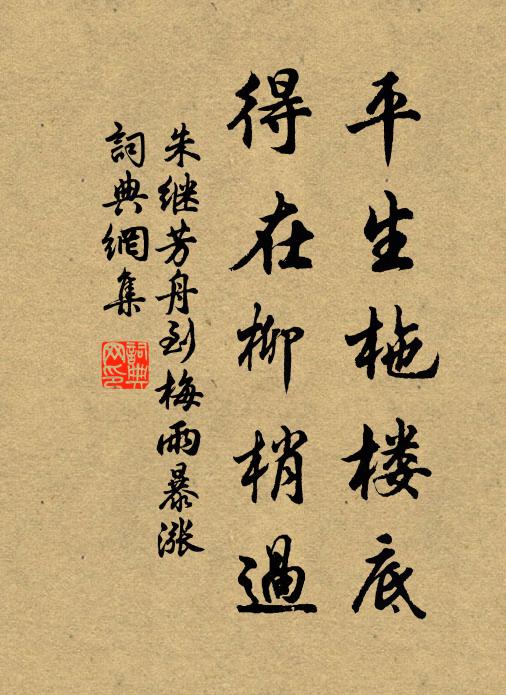 平生柂楼底
得在柳梢過
朱继芳舟到梅雨暴漲
詞典網集
詞典
网印